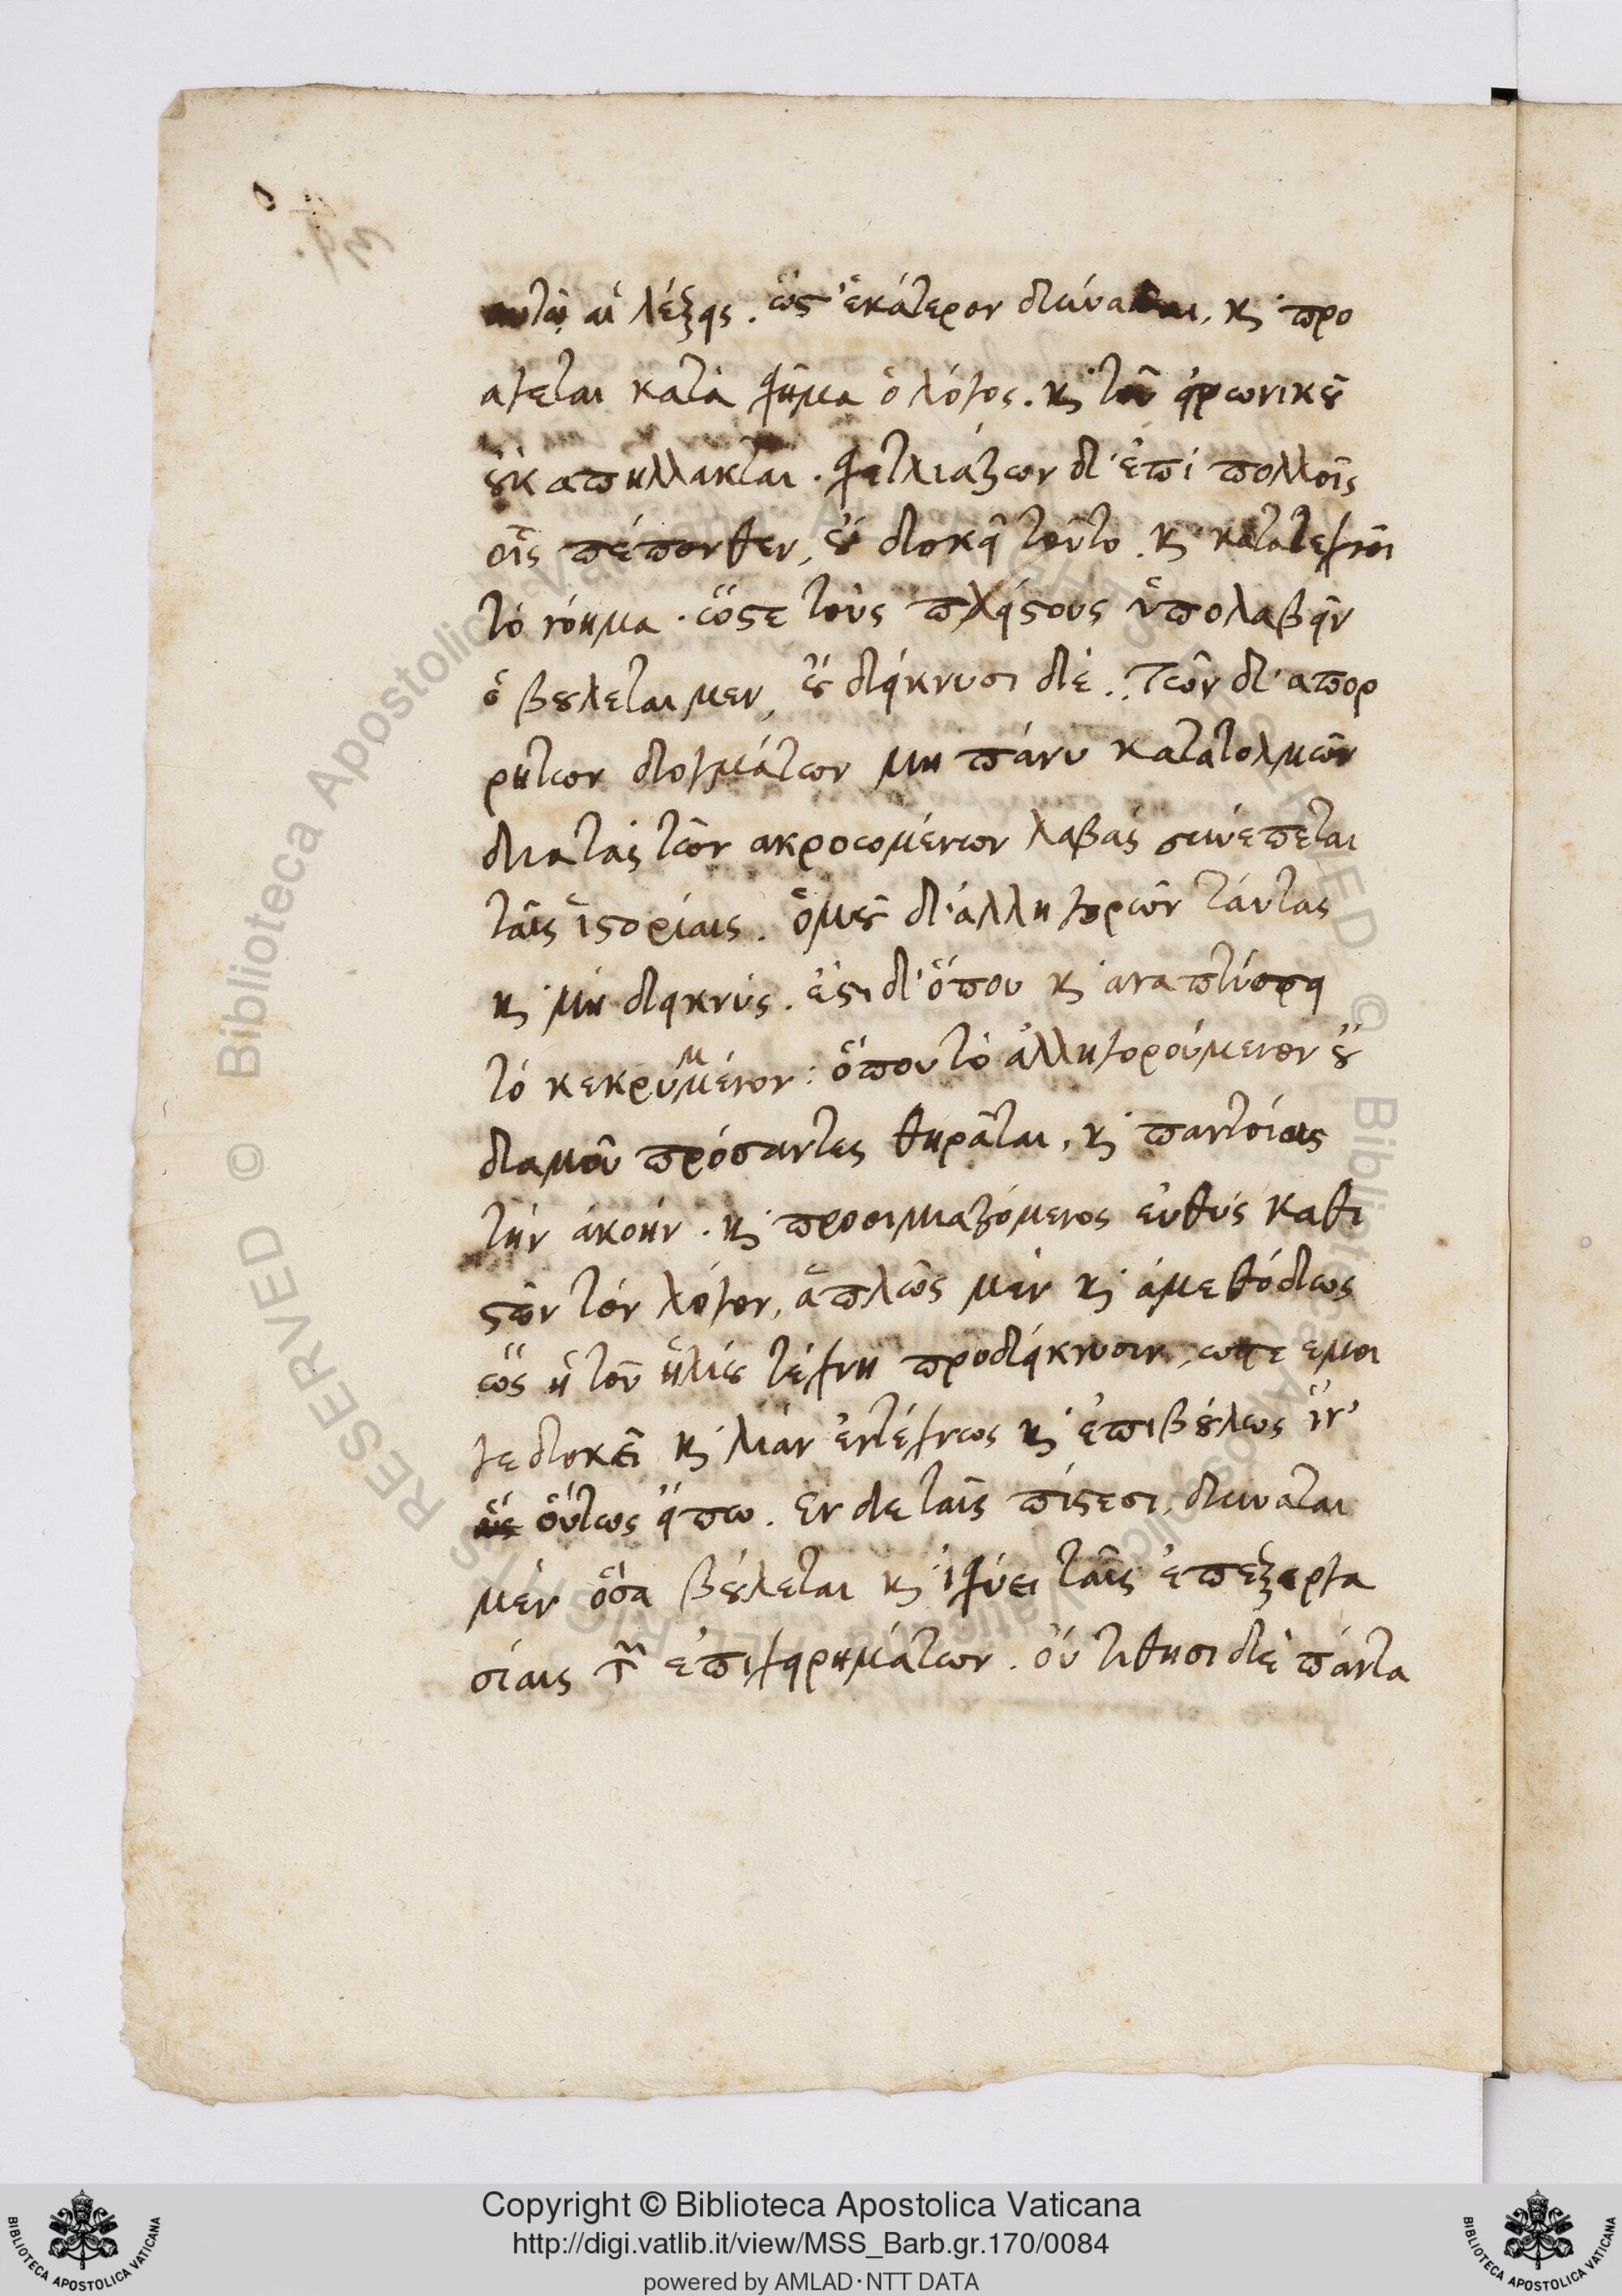 αυτῶ αἱ λέξεις. ὡς ἑκάτερον δύναται, κ προ
άγεται κατὰ σχῆμα ὁ λόγος. κ τοῦ εἰρωνικοῦ
οὐκ απηλλακται. σχετλιάζων δ' ἐπὶ πολλοῖς
οἷς πέπονθεν, οὐ δοκεῖ τοῦτο. κ κατατεχνοῖ
τό νόημα. ὥστε τοὺς πλείστους ὑπολαβεῖν
ὃ βούλεται μεν, οὐ δείκνυσι δέ. Τῶν δ' απορ
ρητων δογμάτων μη πάνυ κατατολμῶν
δια τὰς τῶν ακροωμένων λαβὰς συνέπεται
ταῖς ἱστορίαις. ὁμοῦ δ' ἀλληγορῶν ταύτας
κ μη δεικνύς. ἐστι δ' ὅπου κ αναπτύσσει
τό κεκρυμμένον: ὅπου τὸ ἀλληγορούμενον οὐ
δαμοῦ πρόσαντες θηρᾶται, κ παντοίως
τὴν ἀκοήν. κ προοιμιαζόμενος εὐθύς καθι
στῶν τόν λόγον, ἁπλῶς μὲν κ ἀμεθόδως
ὡς ἡ τοῦ ἡλίου τέχνη προδείκνυσιν, ωστε εμοι
γε δοκεῖ κ λίαν ἐντέχνως κ ἐπιβούλως ἵν'
οὕτως εἴπω. Εν δε ταῖς πίστεσι, δύναται
μὲν ὅσα βούλεται κ ἰσχύει ταῖς ἐπεξεργα
σίαις τῶν ἐπιχειρημάτων. οὐ τιθησι δὲ πάντα
Copyright © Biblioteca Apostolica Vaticana
http://digi.vatlib.it/view/MSS_Barb.gr.170/0084
powered by AMLAD·NTT DATA
BIBLIOTECA APOSTOLICA VATICANA
BIBLIOTECA APOSTOLICA VATICANA